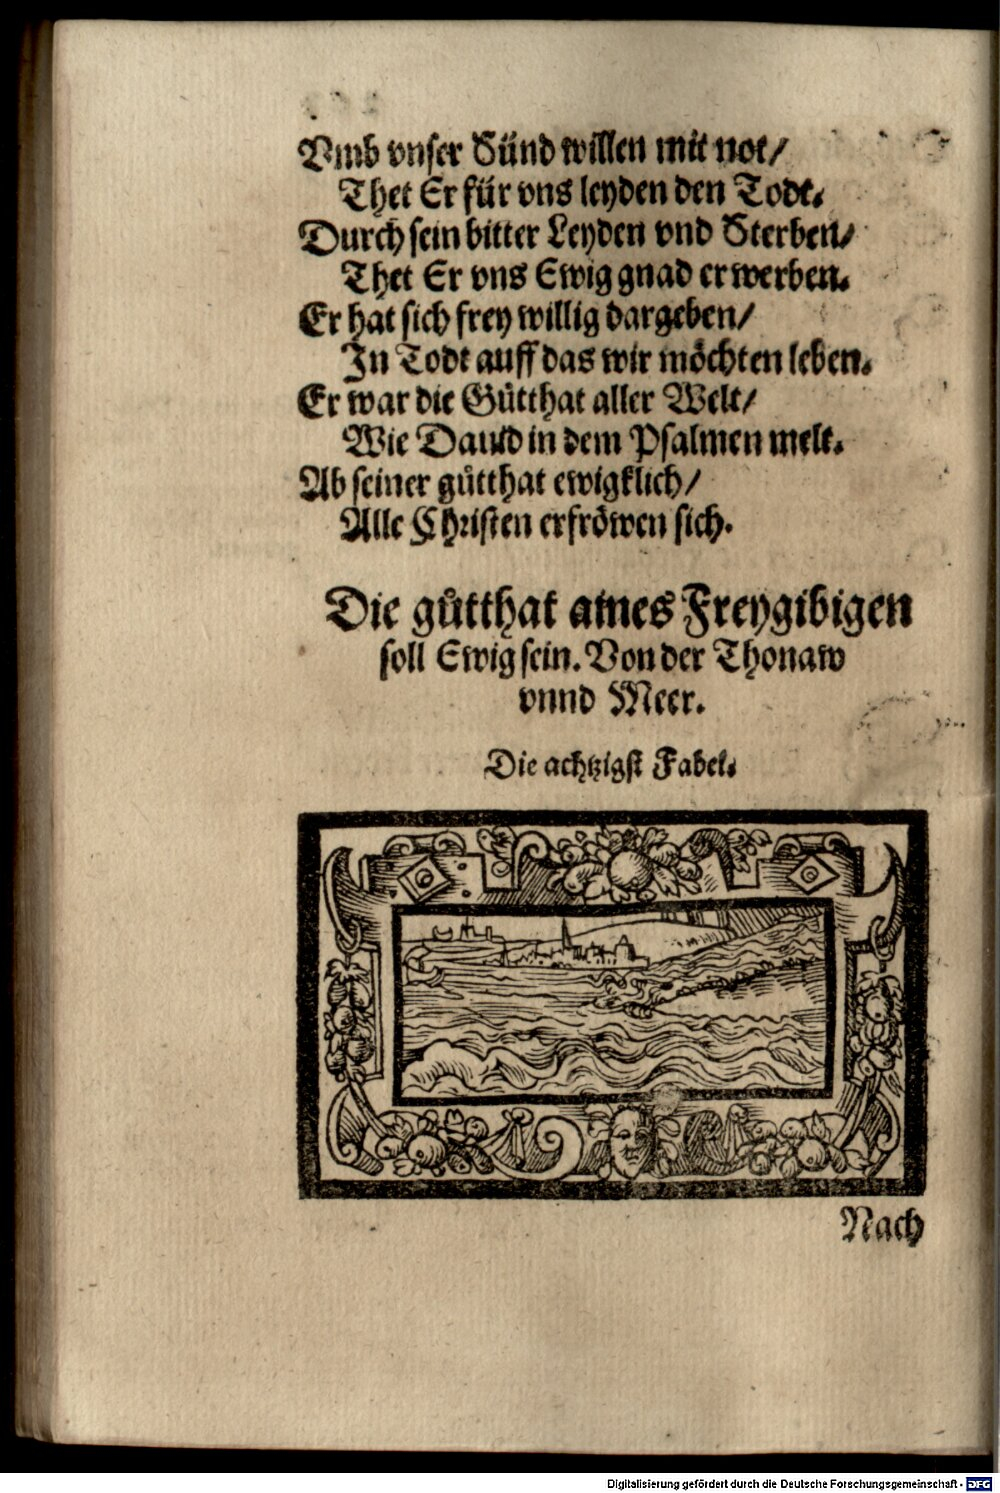 Vmb vnser Sünd willen mit not/
Thet Er für vns leyden den Todt.
Durch sein bitter Leyden vnd Sterben/
Thet Er vns Ewig gnad erwerben.
Er hat sich frey willig dargeben/
In Todt auff das wir möchten leben.
Er war die Gütthat aller Welt/
Wie Dauid in dem Psalmen melt.
Ab seiner gůtthat ewigklich/
Alle Christen erfröwen sich.
Die gůtthat aines Freygibigen
soll Ewig sein. Von der Thonaw
vnnd Meer.
Die achtzigst Fabel.
Nach
Digitalisierung gefördert durch die Deutsche Forschungsgemeinschaft - DFG